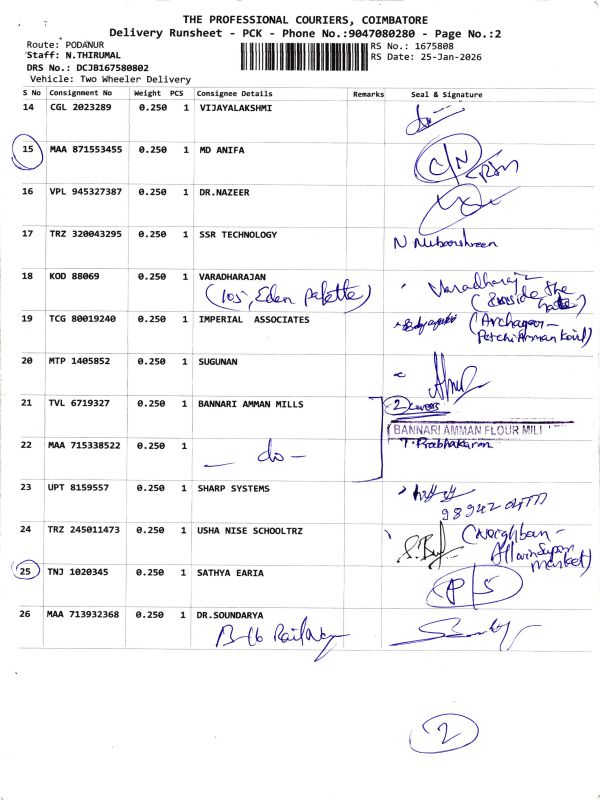 THE PROFESSIONAL COURIERS, COIMBATORE
Delivery Runsheet - PCK - Phone No.:9047080280 - Page No.:2
Route: PODANUR
RS No.: 1675808
Staff: N.THIRUMAL
RS Date: 25-Jan-2026
DRS No.: DCJB167580802
Vehicle: Two Wheeler Delivery
S No Consignment No Weight PCS Consignee Details Remarks Seal & Signature
14 CGL 2023289 0.250 1 VIJAYALAKSHMI
15 MAA 871553455 0.250 1 MD ANIFA
C/N
16 VPL 945327387 0.250 1 DR.NAZEER
17 TRZ 320043295 0.250 1 SSR TECHNOLOGY
N Mubarshreen
18 KOD 88069 0.250 1 VARADHARAJAN
(105, Eden Palette)
19 TCG 80019240 0.250 1 IMPERIAL ASSOCIATES
20 MTP 1405852 0.250 1 SUGUNAN
21 TVL 6719327 0.250 1 BANNARI AMMAN MILLS
2 covers
BANNARI AMMAN FLOUR MILL
22 MAA 715338522 0.250 1 — do —
T. Prabhakaran
23 UPT 8159557 0.250 1 SHARP SYSTEMS
24 TRZ 245011473 0.250 1 USHA NISE SCHOOLTRZ
market)
25 TNJ 1020345 0.250 1 SATHYA EARIA
P/S
26 MAA 713932368 0.250 1 DR.SOUNDARYA
Railway
2